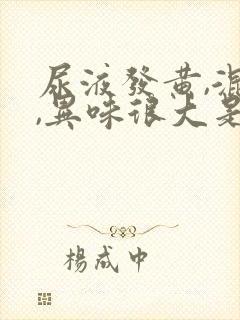 尿液發黃,混
,異味很大是
楊成中